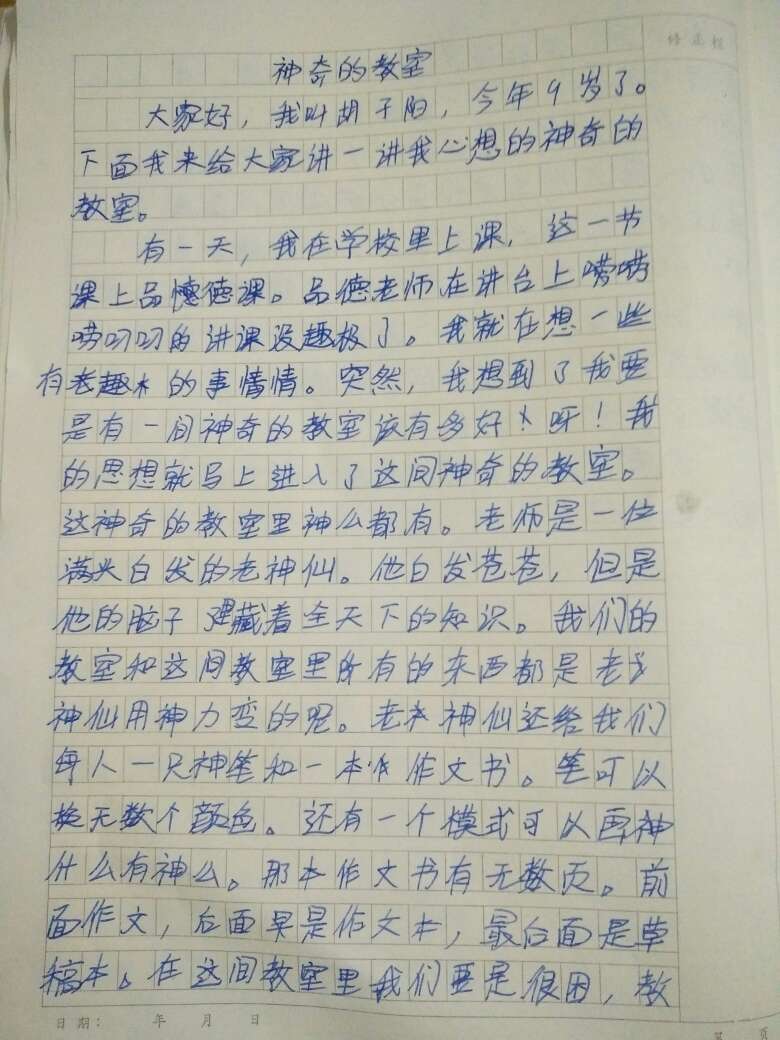 修正栏
神奇的教室
大家好，我叫胡子阳，今年9岁了。
下面我来给大家讲一讲我心想的神奇的
教室。
有一天，我在学校里上课，这一节
课上品德课。品德老师在讲台上唠唠
唠叨叨的讲课没趣极了。我就在想一些
有趣的事情。突然，我想到了我要
是有一间神奇的教室该有多好呀！我
的思想就马上进入了这间神奇的教室。
这神奇的教室里神么都有。老师是一位
满头白发的老神仙。他白发苍苍，但是
他的脑子藏着全天下的知识。我们的
教室和这间教室里所有的东西都是老
神仙用神力变的呢。老神仙还给我们
每人一只神笔和一本作文书。笔可以
换无数个颜色。还有一个模式可以画神
什么有神么。那本作文书有无数页。前
面作文，后面是作文本，最后面是草
稿本。在这间教室里我们要是很困，教
日期： 年 月 日
第 页